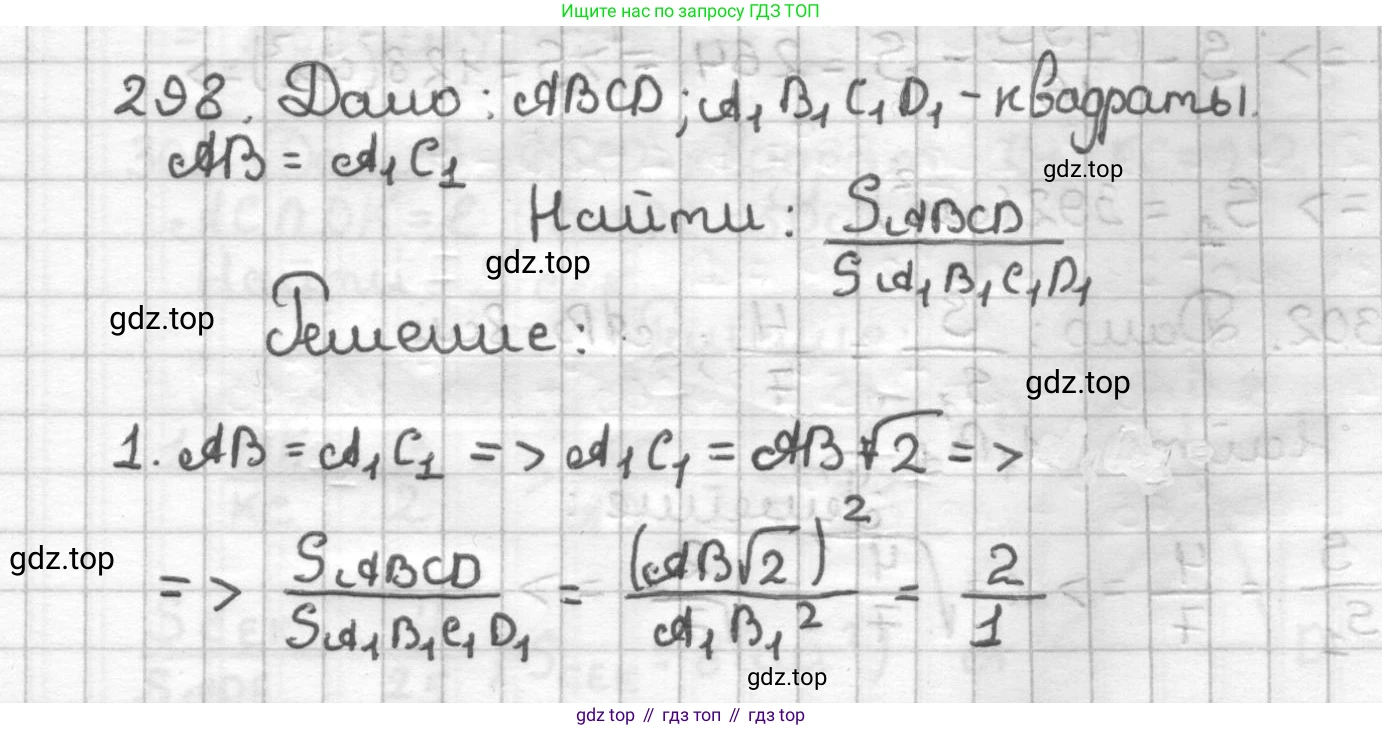 Ищите нас по запросу ГДЗ ТОП
298. Дано: ABCD; A₁B₁C₁D₁ - квадраты.
AB = A₁C₁
gdz.top
Найти: S_ABCD / S_A₁B₁C₁D₁
gdz.top
gdz.top
Решение:
gdz.top
1. AB = A₁C₁ => A₁C₁ = AB√2 =>
gdz.top
=> S_ABCD / S_A₁B₁C₁D₁ = (AB√2)² / A₁B₁² = 2/1
gdz.top
gdz top // гдз топ // gdz top